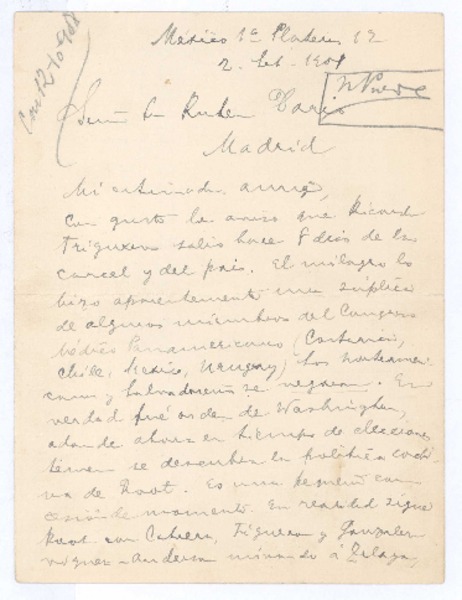 México 1ª Plateros 12
2. Set. 1908
Cont 12/10/908
Señor Dn Ruben Dario
Madrid
Mi estimado amigo,
Con gusto le aviso que Ricardo
Trigueros salio hace 8 dias de la
carcel y del pais. El milagro lo
hizo aparentemente una súplica
de algunos miembros del Congreso
Médico Panamericano (Costarica,
Chile, Mexico, Uruguay) los norteameri
canos y Salvadoreños se negaron. En
verdad fué orden de Washington,
adonde ahora en tiempo de elecciones
temen se descubra la politica cochi
na de Root. Es una pequeña con
cesión de momento. En realidad sigue
Root con Cabrera, Figueroa y Gonzalez
Viquez = Anderson minando á Zelaya,